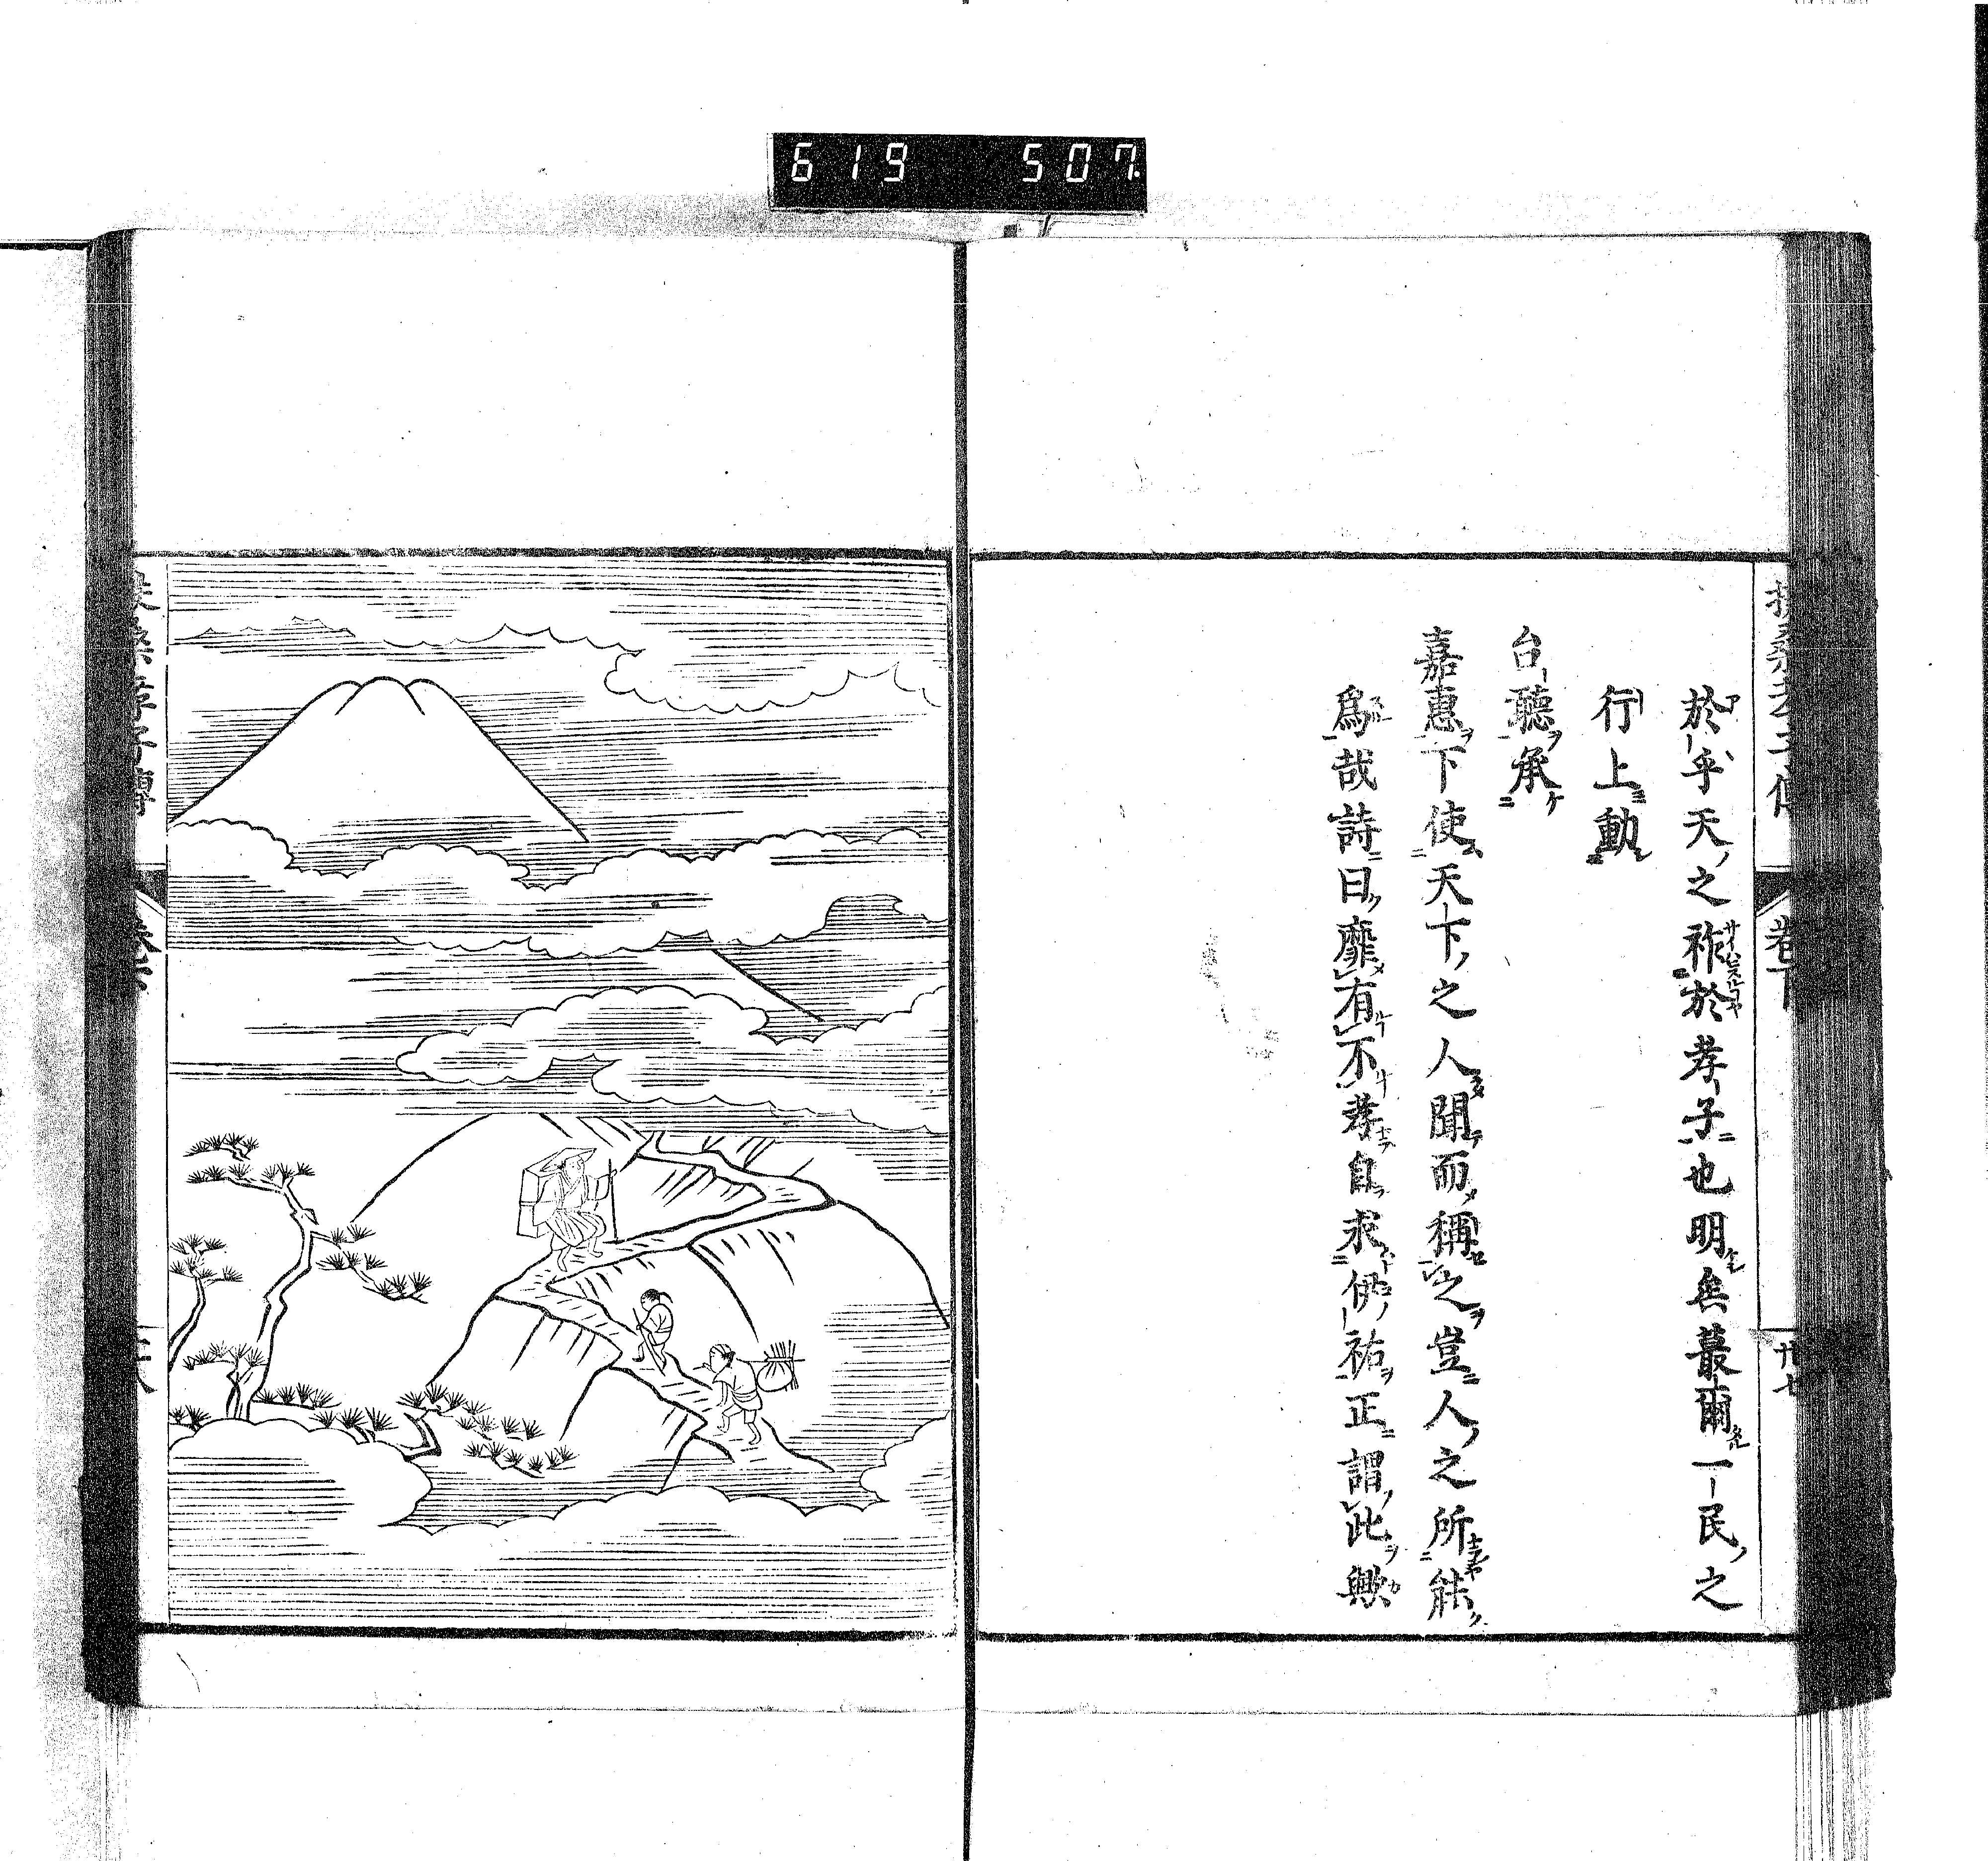 619 507
於乎天之祚於孝子也明矣蕞爾一民之
行上動
台聽承
嘉惠下使天下之人聞而稱之豈人之所能
爲哉詩曰靡有不孝自求伊祐正謂此歟
卷下
卅七
孝子傳